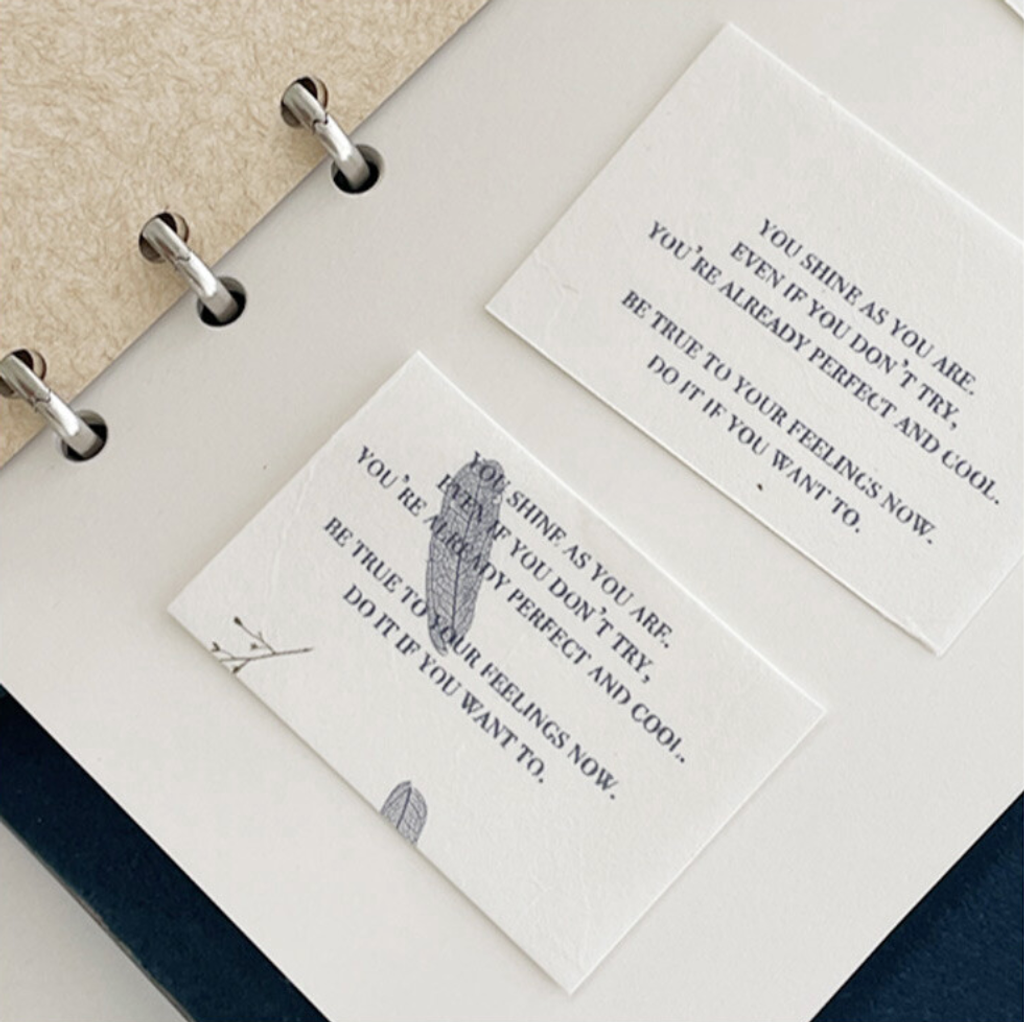 YOU SHINE AS YOU ARE.
EVEN IF YOU DON'T TRY,
YOU'RE ALREADY PERFECT AND COOL.
BE TRUE TO YOUR FEELINGS NOW.
DO IT IF YOU WANT TO.
YOU SHINE AS YOU ARE.
EVEN IF YOU DON'T TRY,
YOU'RE ALREADY PERFECT AND COOL.
BE TRUE TO YOUR FEELINGS NOW.
DO IT IF YOU WANT TO.